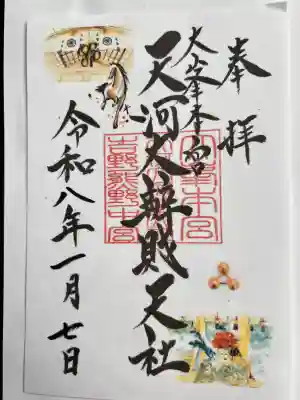 奉拝
大峯本宮
天河大辨財天社
令和八年一月七日
吉野熊野中宮